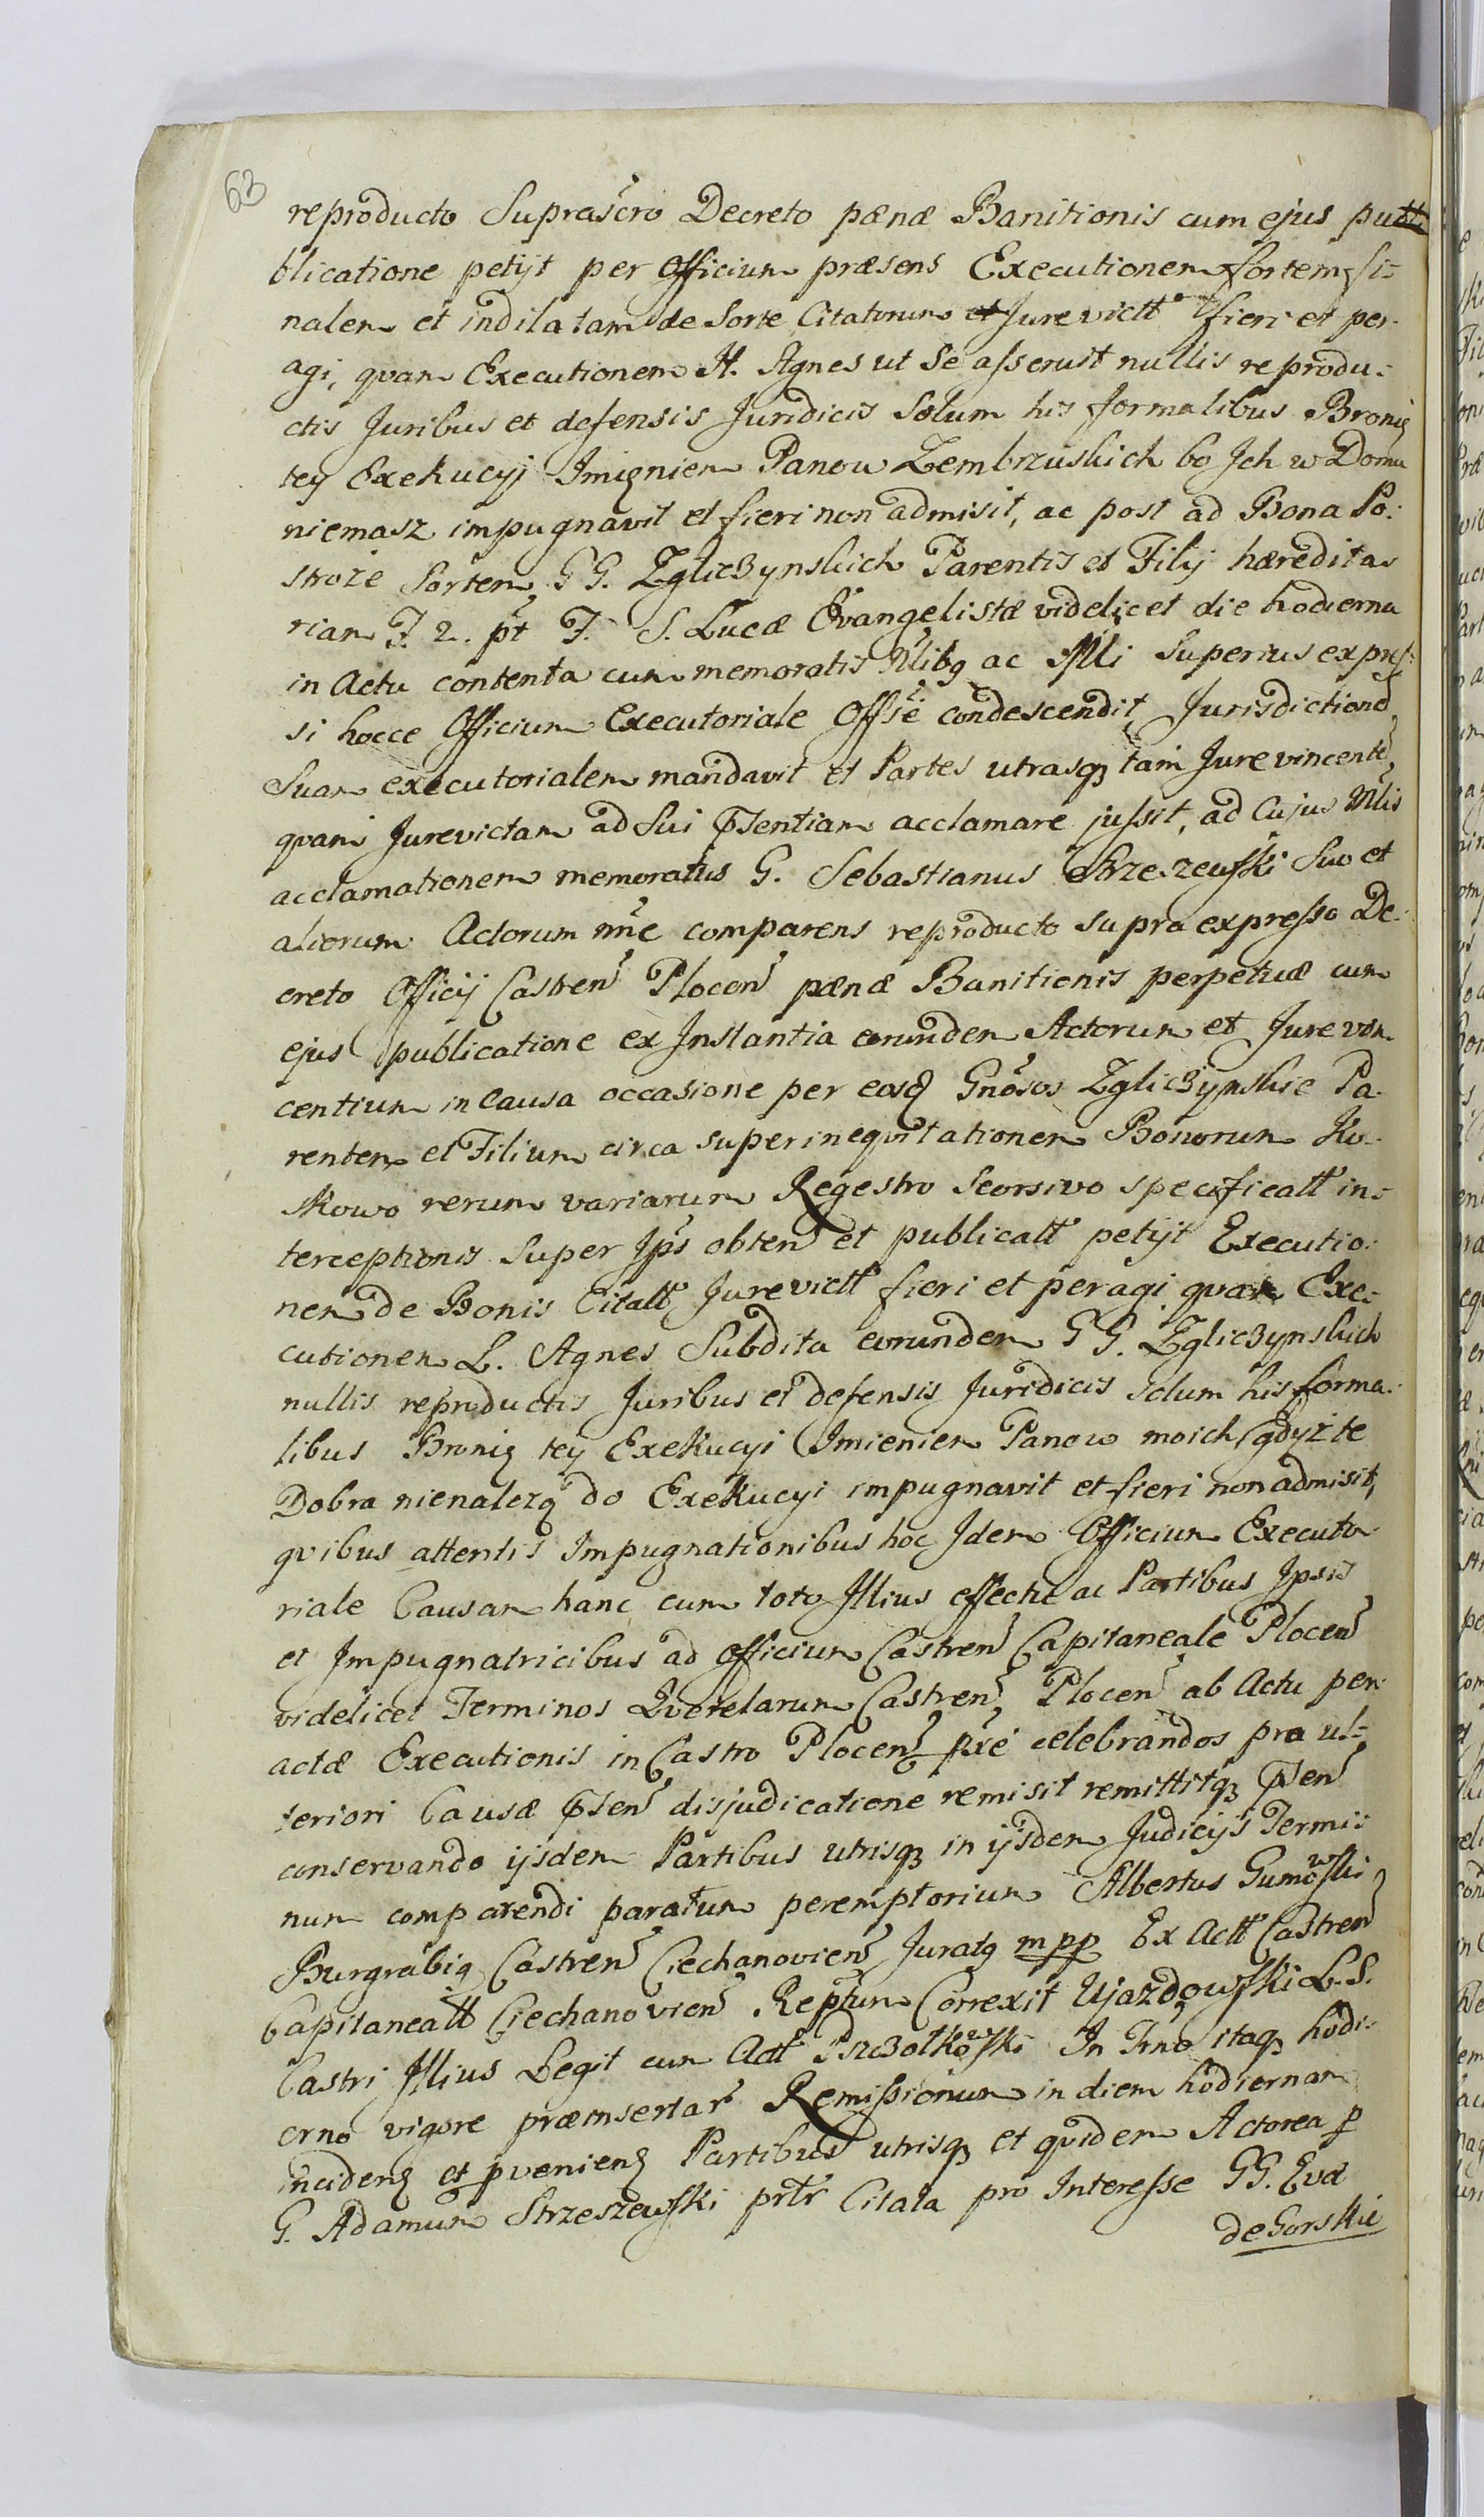 63
reproducto Suprascro Decreto pænæ Banitionis cum ejus pu
blicatione petijt per Officium præsens Executionem fortem fi=
nalem et indilatam de Sorte Citatorum et Jurevictt fieri et per-
agi, quam Executionem H. Agnes ut Se asseruit nullis reprodu=
ctis Juribus et defensis Juridicis Solum his formalibus Bronię
tey Exekucyj Imięniem Panow Zembrzuskich bo Jch w Domu
niemasz impugnavit et fieri non admisit, ac post ad Bona Po=
stroże Sortem GG. Zgliczynskich Parentis et Filij hæredita=
riam F. 2. pt F. S. Lucæ Evangelistæ videlicet die hodierna
in Actu contenta cum memoratis Nlibg ac Mli Superius expres=
si hocce Officium Executoriale Offse condescendit Jurisdictione
Suam executorialem mandavit et Partes utrasq tam Jurevincente
quam Jurevictam ad Sui Pntiam acclamare jussit, ad Cujus Mlis
acclamationem memoratus G. Sebastianus Strzeszewski Suo et
aliorum Actorum nne comparens reproducto supra expresso De-
creto Officij Castren Plocen pænæ Banitionis perpetuæ cum
ejus publicatione ex Instantia eorundem Actorum et Jurevin-
centium in Causa occasione per eosd Gnosos Zgliczynskie Pa-
rentem et Filium circa superinequitationem Bonorum Ko-
skowo rerum variarum Regestro Seorsivo specificatt in=
terceptionis Super Jps obten et publicatt petijt Executio=
nem de Bonis Citatt Jurevictt fieri et peragi quam Exe=
cutionem L. Agnes Subdita eorundem GG. Zgliczynskich
nullis reproductis Juribus et defensis Juridicis Solum his forma-
libus Bronię tey Exekucyi Imieniem Panow moich gdyż te
Dobra nienalezą do Exekucyi impugnavit et fieri non admisit,
quibus attentis Impugnationibus hoc Idem Officium Executo-
riale Causam hanc cum toto Illius effectu ac Partibus Ipsis
et Impugnatricibus ad Officium Castren Capitaneale Plocen
videlicet Terminos Querelarum Castren Plocen ab Actu per-
actæ Executionis in Castro Plocen pxe celebrandos pro ul=
teriori Causæ Psen disjudicatione remisit remittitq Psen
conservando ijsdem Partibus utrisq in ijsdem Judicijs Termi=
num comparendi paratum peremptorium Albertus Gumowski
Burgrabig Castren Ciechanovien Juratg mpp Ex Actt Castren
Capitaneatt Ciechanovien Reptum Correxit Ujazdowski L.S.
Castri Illius Legit cum Actt Przedpełkowski In Tno itaq hodi=
erno vigore præinsertar Remissionum in diem hodiernam
inciden et pvenien Partibus utrisq et quidem Actorea p
G. Adamum Strzeszewski prtr Citata pro Interesse GG. Evæ
de Gorskie